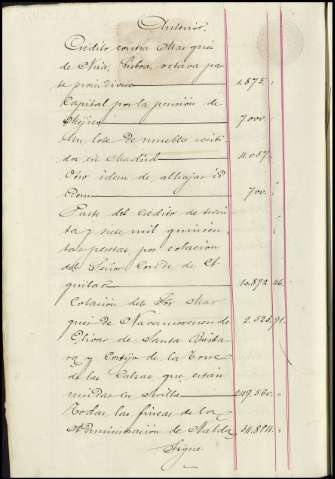 Anterior.
Credito contra Marqués
de Nisa, Lisboa, octava par
te proindiviso 1.875,,
Capital por la pensión de
Méjico 7000,,
Un lote de muebles vendi
dos en Madrid 11.057,,
Otro idem de alhajas id
idem 700,,
Parte del credito de treinta
y siete mil quinien
tas pesetas, por colación
del Señor Conde de A
guilar 10.872
Colación del Sor Mar
qués de Navamorcuende 2.525,91.
Olivar de Santa Bárba
ra y Cortijo de la Torre
de las Calzas que están
en Sevilla 249.560,,
Todas las fincas de la
Administración de Nalda
Sigue